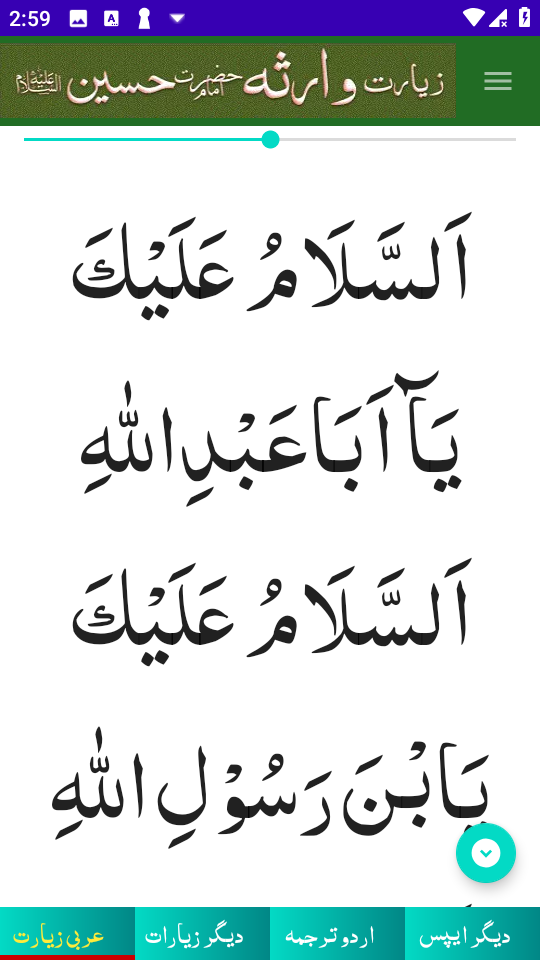 2:59
زیارت وارثه حضرت امام حسین علیه السلام
اَلسَّلَامُ عَلَيْكَ
يَآ اَبَاعَبْدِاللّٰهِ
اَلسَّلَامُ عَلَيْكَ
يَابْنَ رَسُوْلِ اللّٰهِ
عربی زیارت
دیگر زیارات
اردو ترجمه
دیگر ایپس